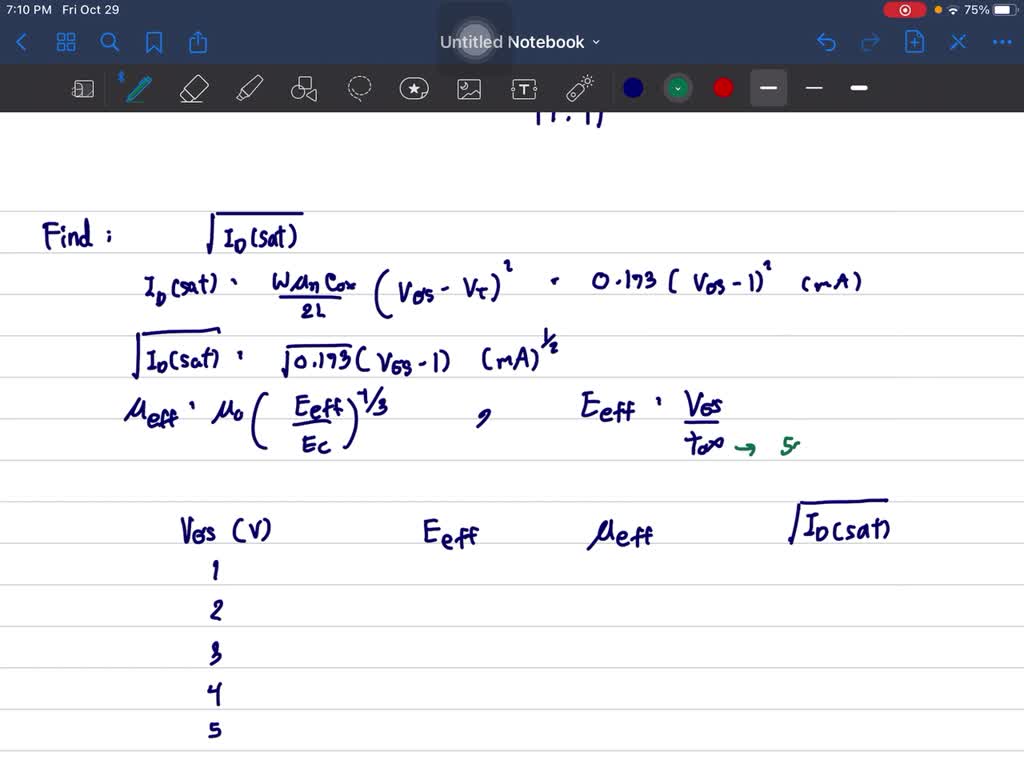 7:10 PM Fri Oct 29 75%
Untitled Notebook
Find : √ID(sat)
ID(sat) = WμnCox/2L (VGS - VT)² = 0.173 (VGS - 1)² (mA)
√ID(sat) = √0.173 (VGS - 1) (mA)^1/2
μeff = μ0 (Eeff/EC)^-1/3 , Eeff = VGS/tox →
VGS (V) Eeff μeff √ID(sat)
1
2
3
4
5